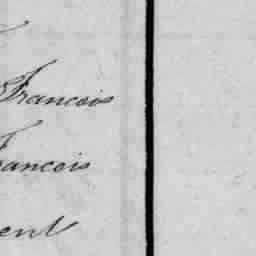 Francois
Francois
ent